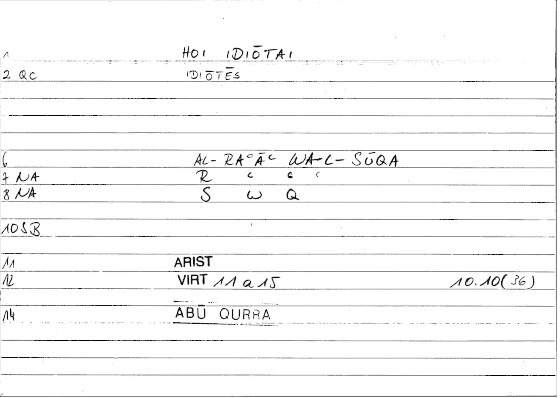 1 HOI IDIŌTAI
2 QC IDIŌTĒS
6 AL-RAᶜĀᶜ WA-L-SŪQA
7 NA R ᶜ ᶜ ᶜ
8 NA S W Q
10 SB
11 ARIST
12 VIRT 11 a 15 10.10(36)
14 ABŪ QURRA